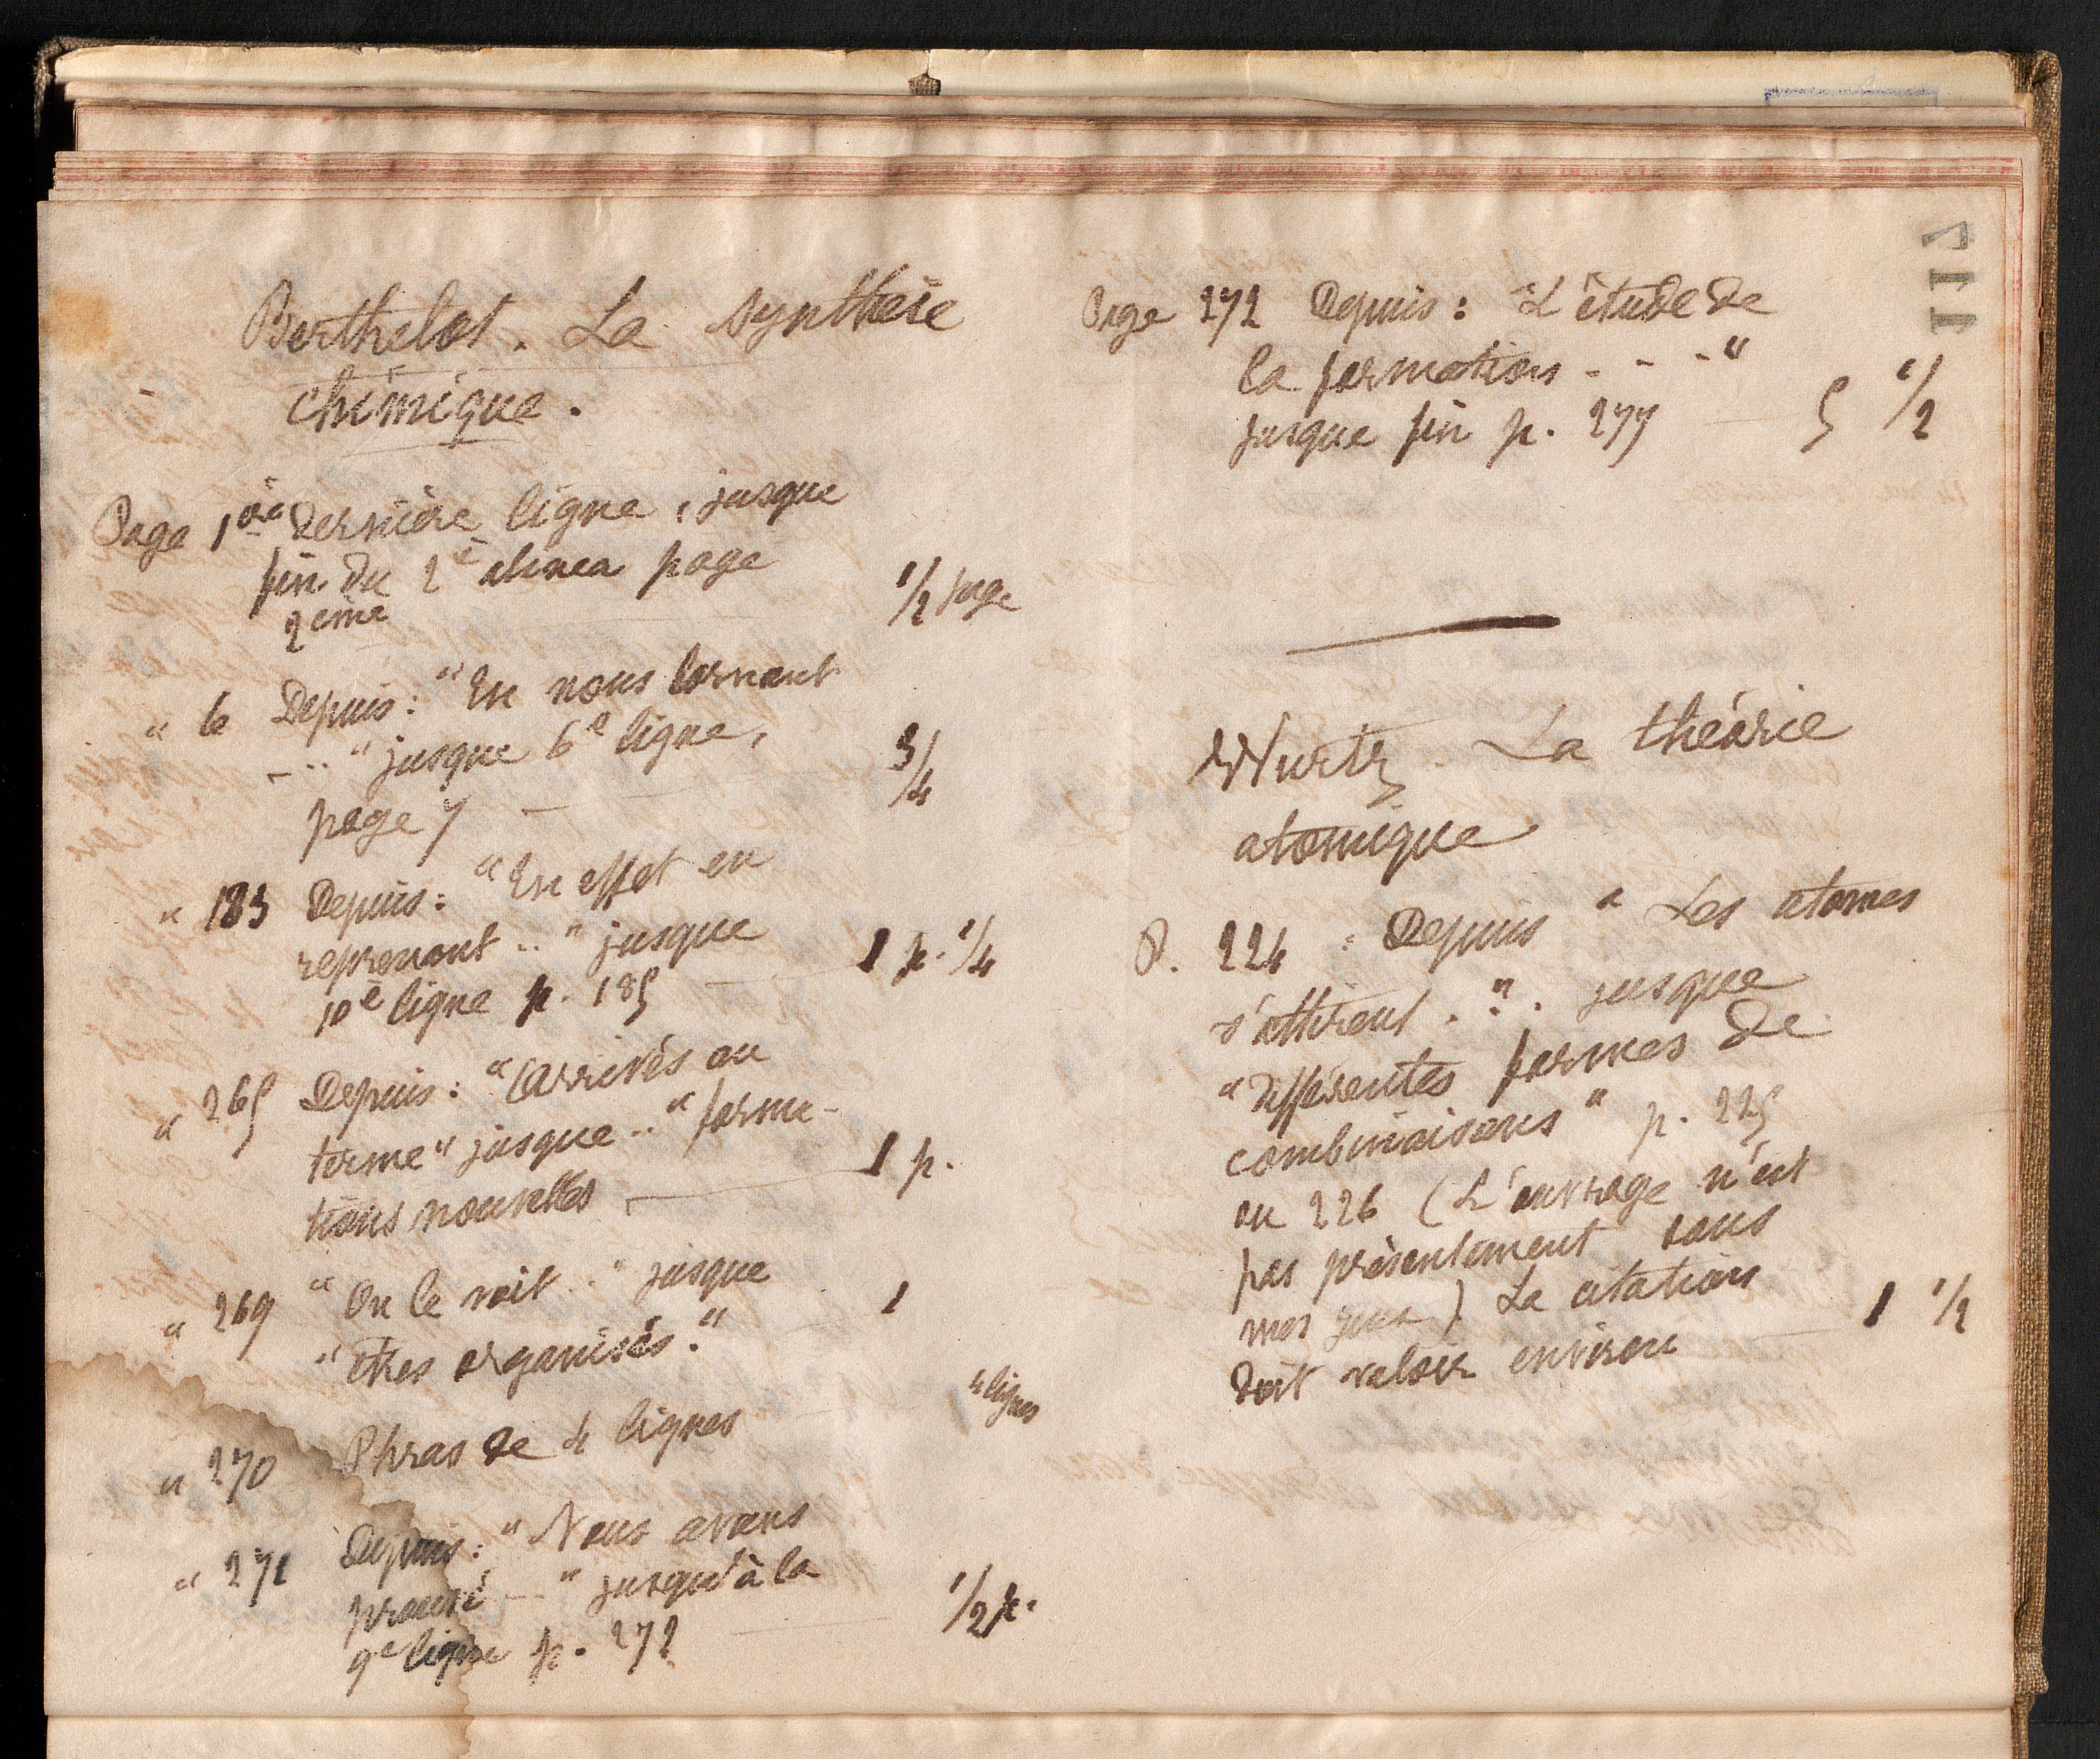 Berthelot. La synthèse
chimique.
Page 1ère dernière ligne, jusque
fin du 2e alinea page
2eme 1/2 page
" 6 Depuis: "En nous bornant
- .. " jusque 6e ligne,
page 7 — 3/4
" 183 Depuis: "En effet en
reprenant .. " jusque
10e ligne p. 185 — 1 p. 1/4
" 265 Depuis: "Arrivés au
terme" jusque .. "forma-
tions nouvelles — 1 p.
" 269 "On le voit .." jusque
"êtres organisés." 1
" 270 Phras de 4 lignes 4 lignes
" 271 Depuis: "Nous avons
prouvé -- " jusqu'à la
9e ligne p. 272 — 1/2 p.
Page 272 Depuis: "L'étude de
la formation - - -"
jusque fin p. 277 — 5 1/2
Wurtz. La théorie
atomique
P. 224 : Depuis " Les atomes
s'attirent . ". jusque
"différentes formes de
combinaisons" p. 225
ou 226 (L'ouvrage n'est
pas présentement sous
mes yeux) La citation
doit valoir environ — 1 1/2